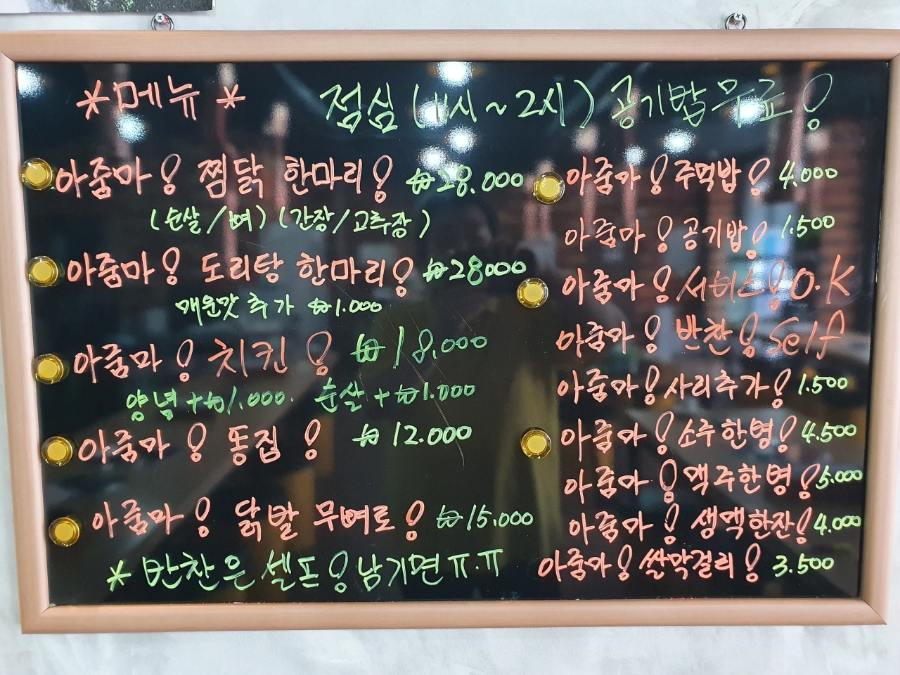 *메뉴* 점심 (11시~2시) 공기밥무료!
아줌마! 찜닭 한마리! ₩28.000
(순살/뼈) (간장/고추장)
아줌마! 도리탕 한마리! ₩28000
매운맛 추가 ₩1.000
아줌마! 치킨! ₩18.000
양념+₩1.000. 순살+₩1.000
아줌마! 똥집! ₩12.000
아줌마! 닭발 무뼈로! ₩15.000
*반찬은 셀프! 남기면 ㅠ.ㅠ
아줌마! 주먹밥! 4.000
아줌마! 공기밥! 1.500
아줌마! 서비스! O.K
아줌마! 반찬! Self
아줌마! 사리추가! 1.500
아줌마! 소주한병! 4.500
아줌마! 맥주한병! 5.000
아줌마! 생맥한잔! 4.000
아줌마! 쌀막걸리! 3.500